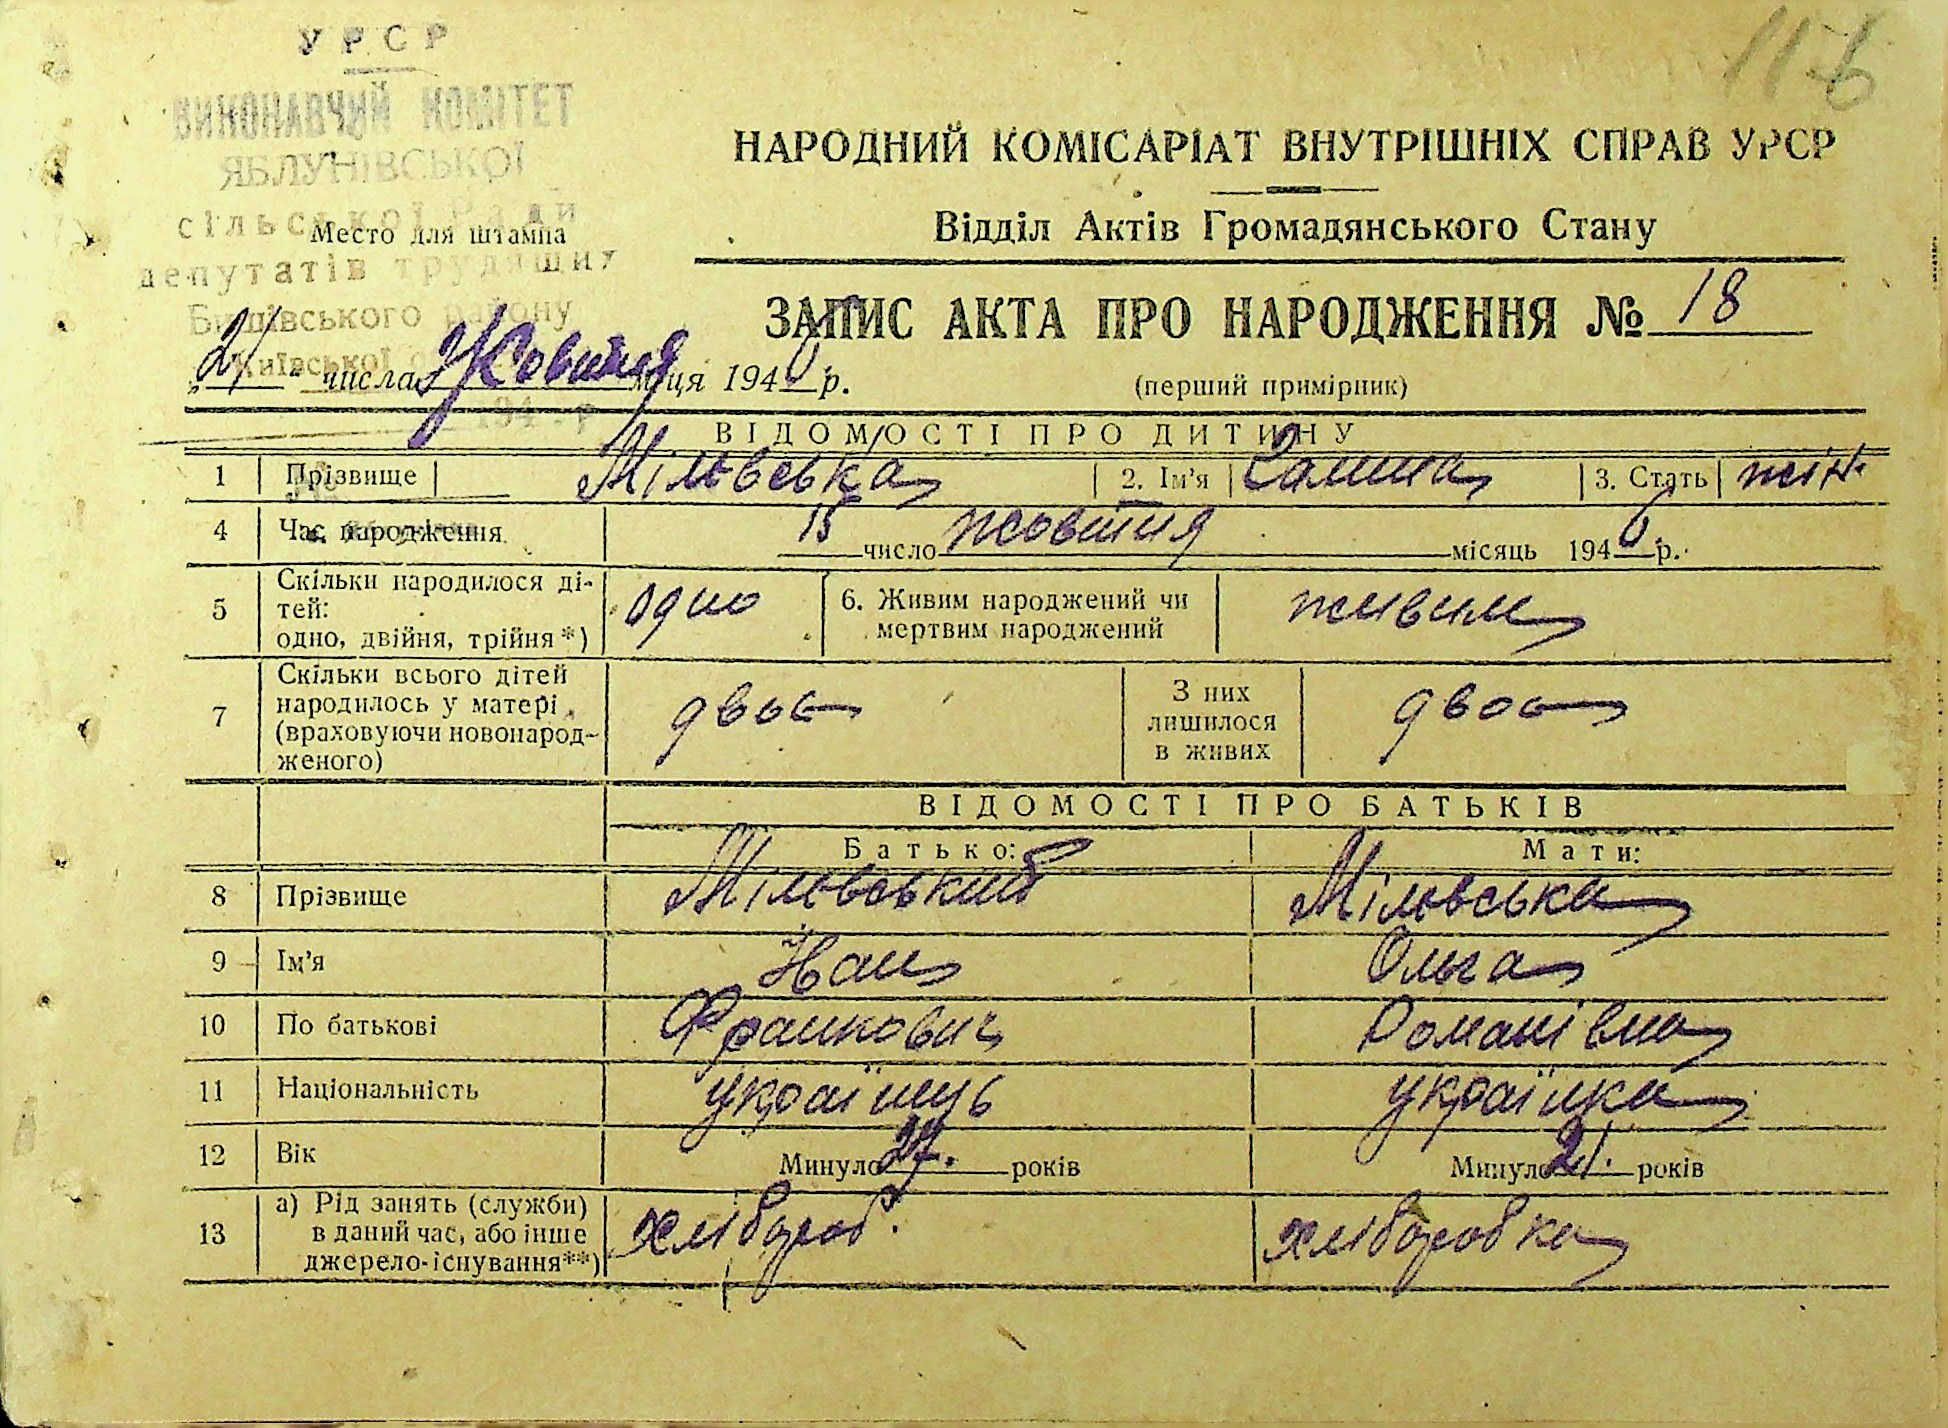 116
УРСР
ВИКОНАВЧИЙ КОМІТЕТ
ЯБЛУНІВСЬКОЇ
сільської Ради
Место для штампа
депутатів трудящих
Бишівського району
Київської
194 р
НАРОДНИЙ КОМІСАРІАТ ВНУТРІШНІХ СПРАВ УРСР
Відділ Актів Громадянського Стану
ЗАПИС АКТА ПРО НАРОДЖЕННЯ № 18
„21“ числа Жовтня м-ця 1940 р.
(перший примірник)
ВІДОМОСТІ ПРО ДИТИНУ
1 Прізвище Мільвська 2. Ім'я Галина 3. Стать жін.
4 Час народження 15 число жовтня місяць 1940 р.
5 Скільки народилося ді-
тей:
одно, двійня, трійня*) одно 6. Живим народжений чи
мертвим народжений живим
7 Скільки всього дітей
народилось у матері
(враховуючи новонарод-
женого) двоє З них
лишилося
в живих двоє
ВІДОМОСТІ ПРО БАТЬКІВ
Батько: Мати:
8 Прізвище Мільвський Мільвська
9 Ім'я Іван Ольга
10 По батькові Франкович Романівна
11 Національність українець українка
12 Вік Минуло 27. років Минуло 21. років
13 а) Рід занять (служби)
в даний час, або інше
джерело-існування**) хлібороб. хліборобка